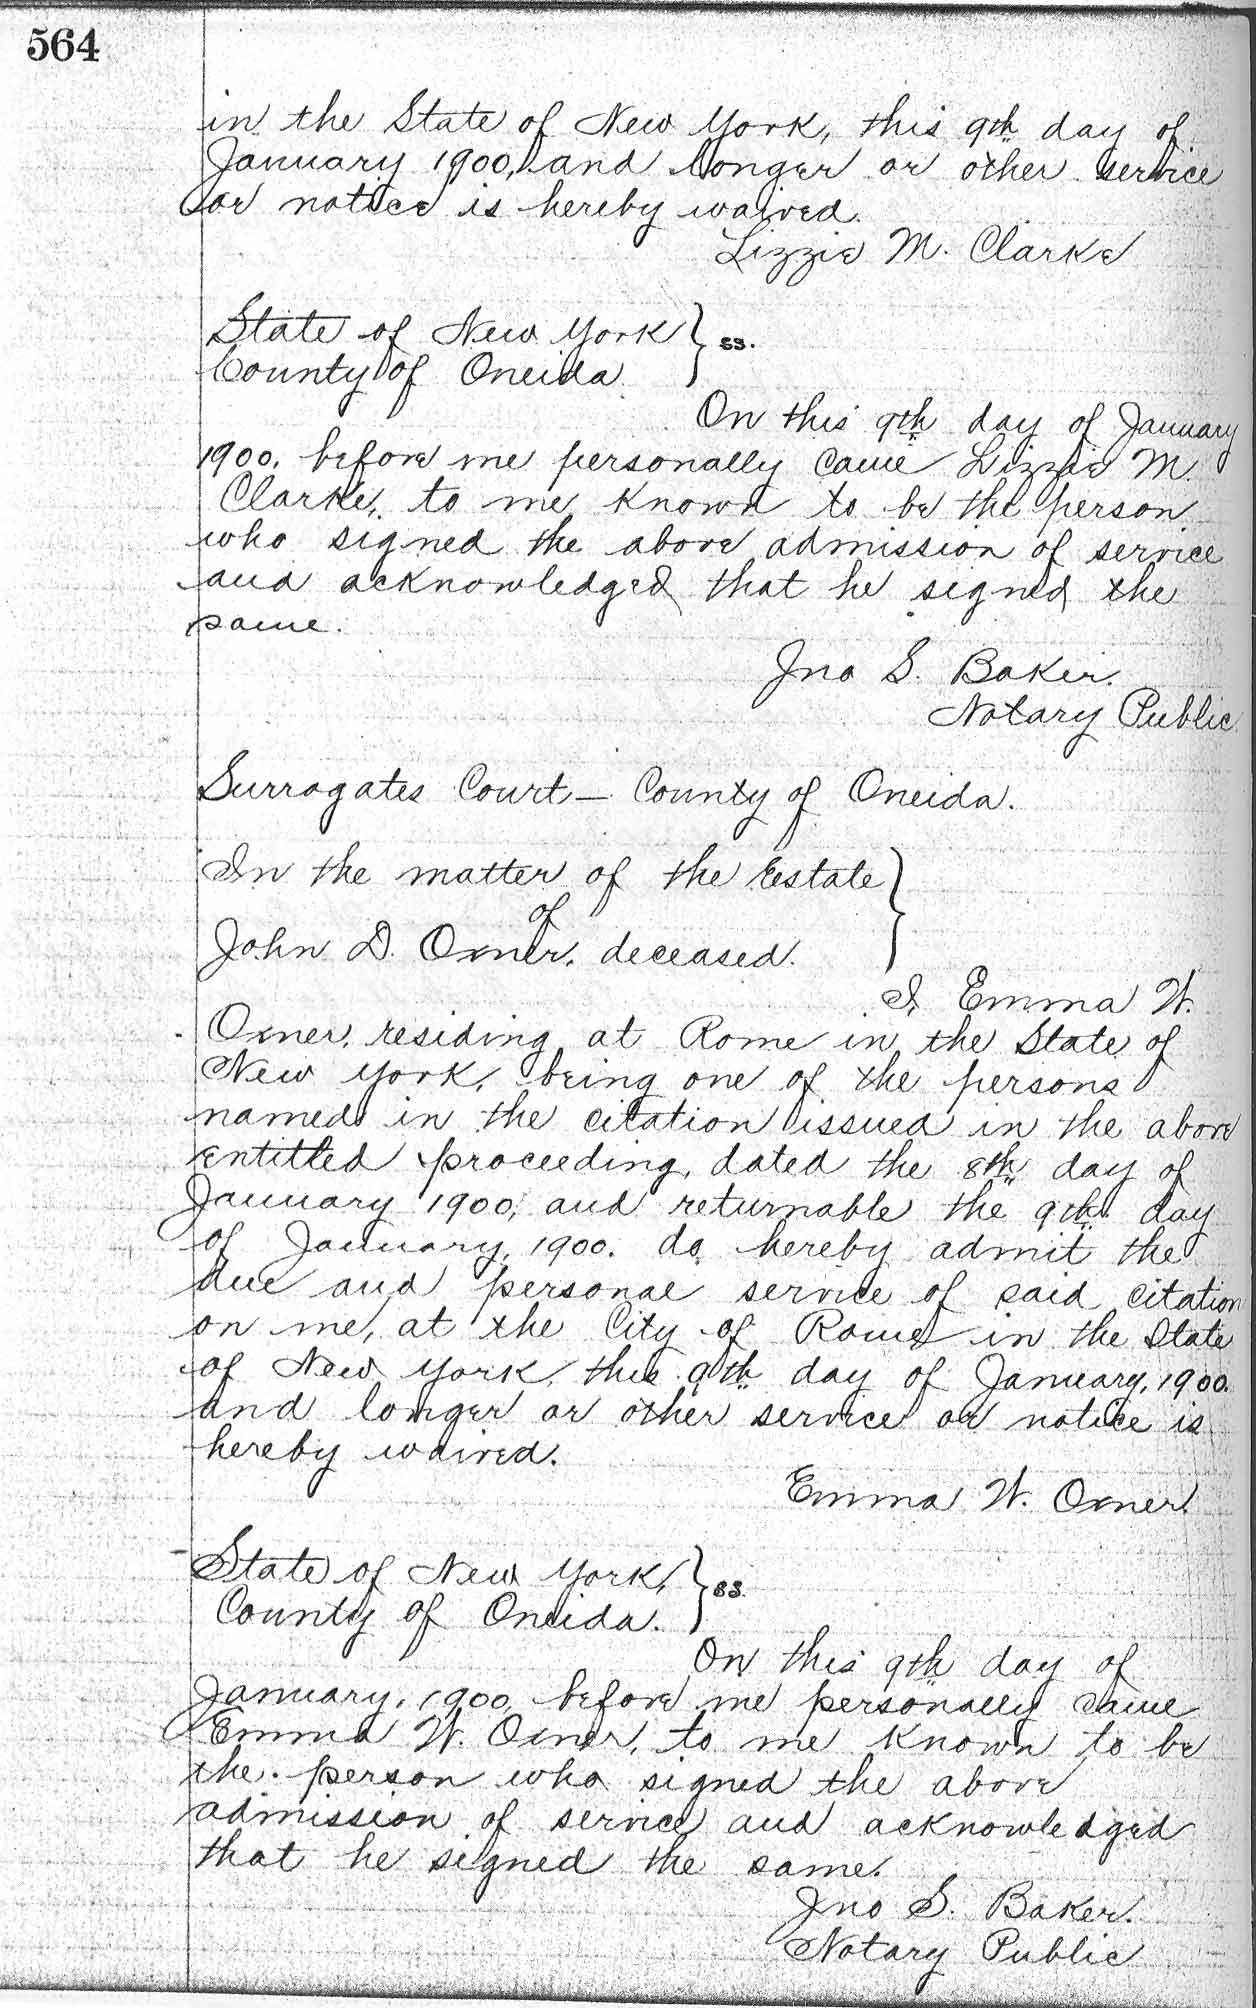 564
in the State of New York, this 9th day of
January 1900, and longer or other service
or notice is hereby waived.
Lizzie M. Clarke
State of New York } ss.
County of Oneida
On this 9th day of January
1900, before me personally came Lizzie M.
Clarke, to me known to be the person
who signed the above admission of service
and acknowledged that he signed the
same.
Jno S. Baker.
Notary Public
Surrogates Court – County of Oneida.
In the matter of the Estate }
of
John D. Oxner, deceased.
I, Emma W.
Oxner, residing at Rome in the State of
New York, being one of the persons
named in the citation issued in the above
entitled proceeding, dated the 8th day of
January 1900, and returnable the 9th day
of January, 1900. do hereby admit the
due and personal service of said citation
on me, at the City of Rome in the State
of New York, this 9th day of January, 1900.
and longer or other service or notice is
hereby waived.
Emma W. Oxner.
State of New York, } ss.
County of Oneida.
On this 9th day of
January, 1900, before me personally came
Emma W. Oxner, to me known to be
the person who signed the above
admission of service and acknowledged
that he signed the same.
Jno S. Baker.
Notary Public